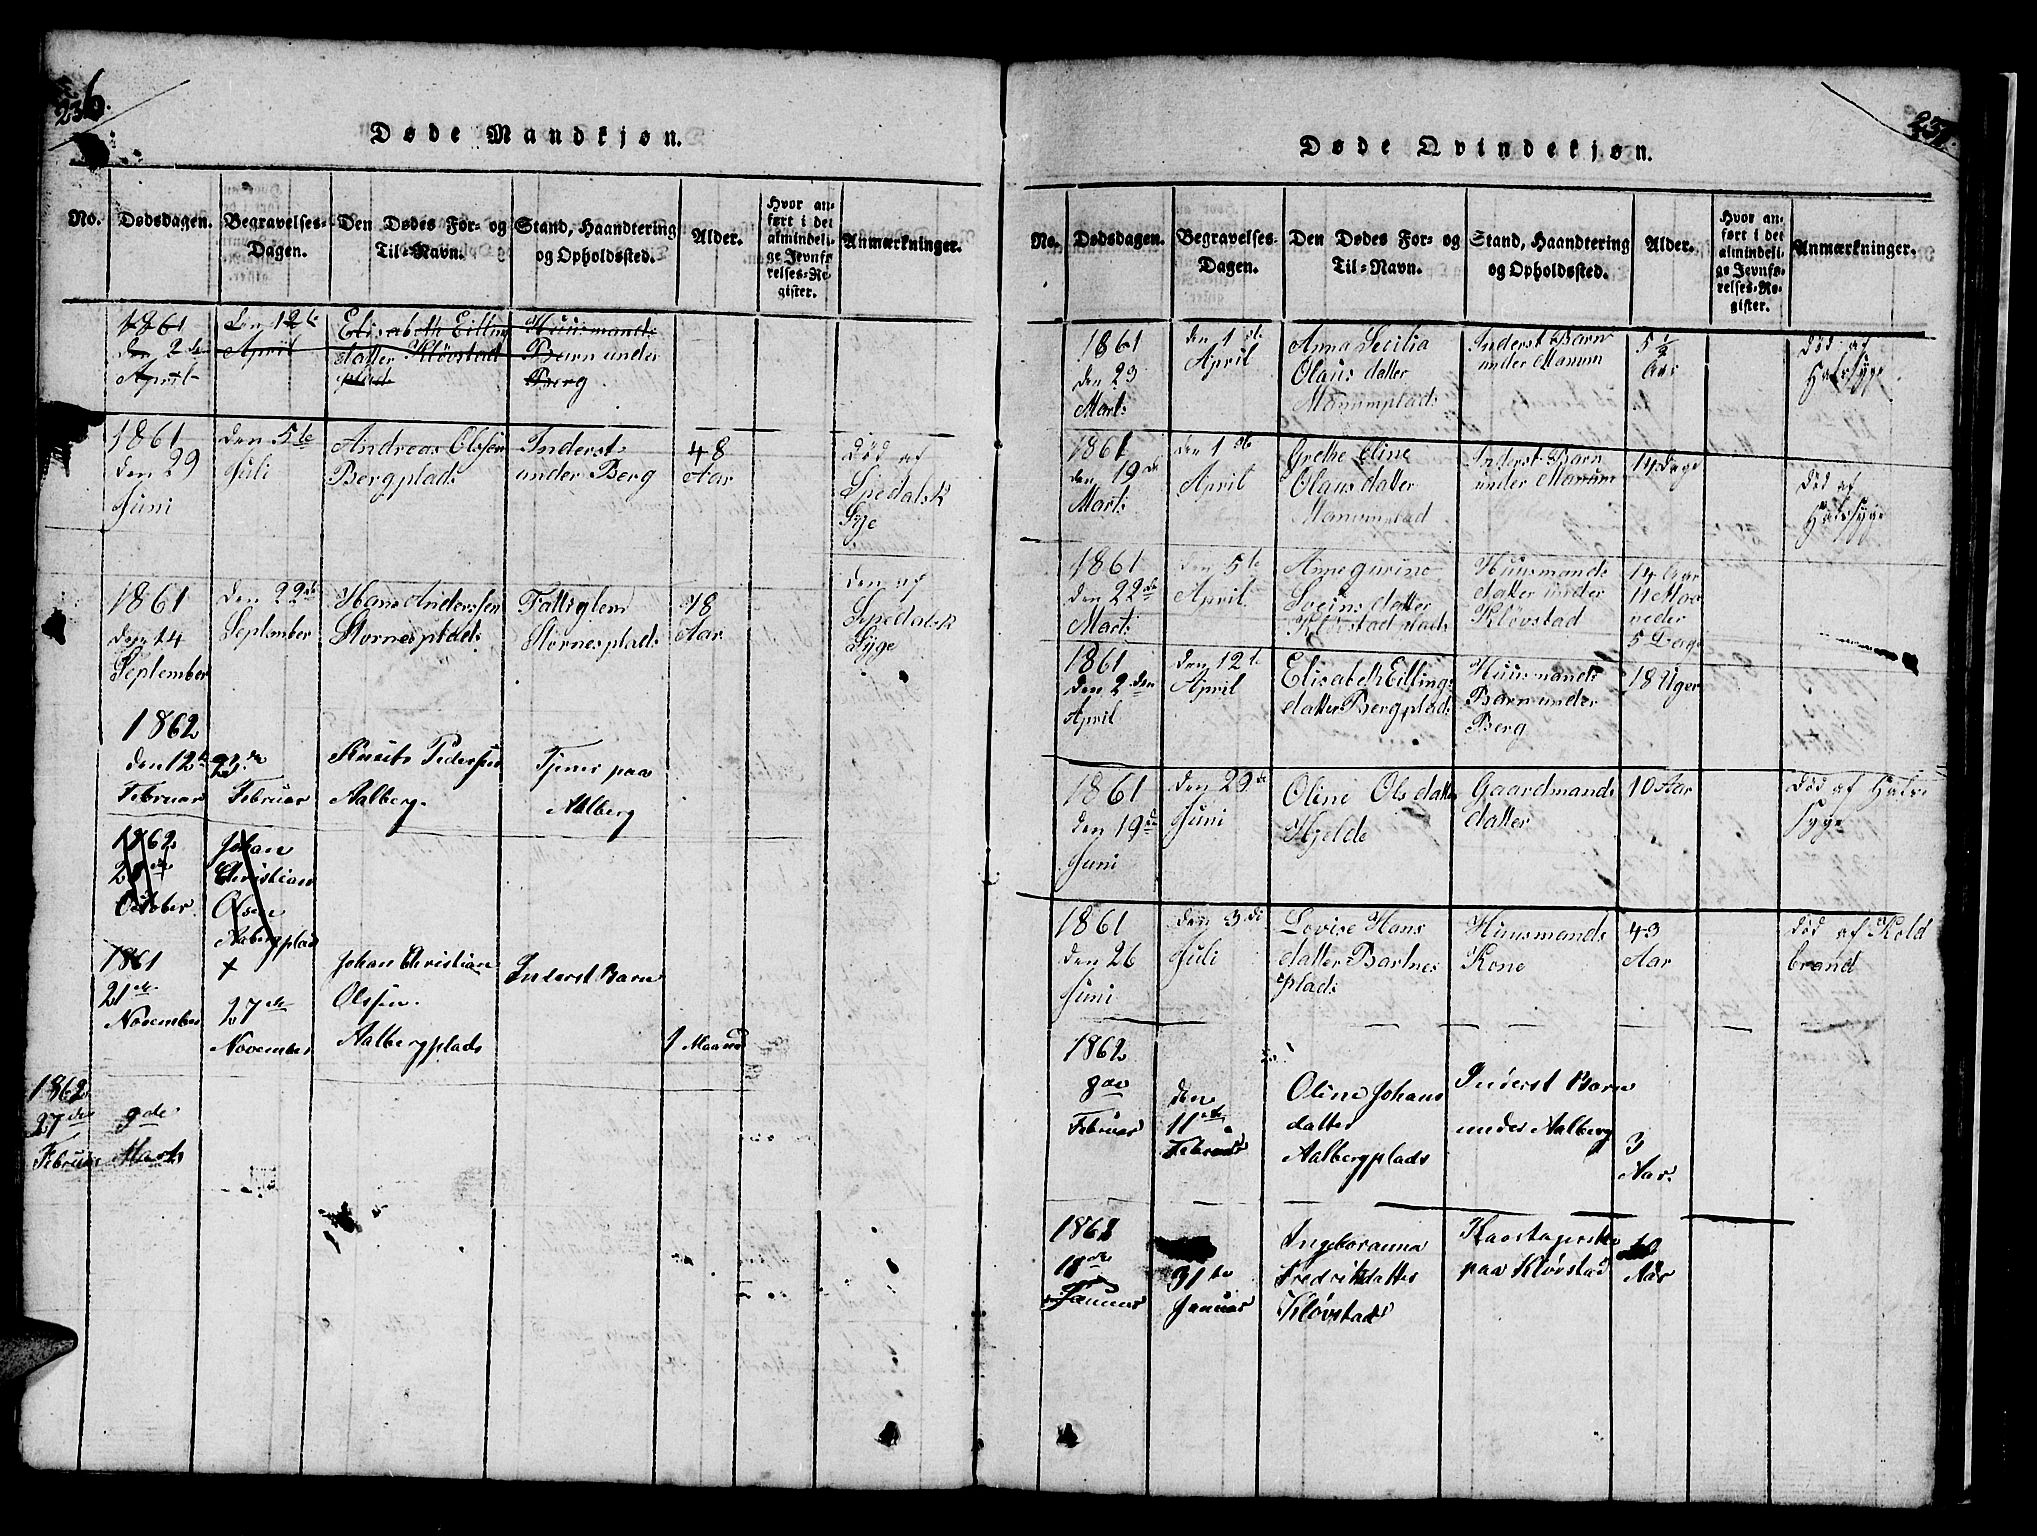 236.
Døde Mandkjøn.
No.
Dødsdagen.
Begravelses-
Dagen.
Den Dødes For- og
Til-Navn.
Stand, Haandtering
og Opholdssted.
Alder.
Hvor an-
ført i det
almindeli-
ge Jevnfø-
relses-Re-
gister.
Anmærkninger.
1861
den 2den
April
Den 12te
April
Elisabeth Eilling
datter Kløvstad
plads
Huusmands
Barn under
Berg
1861
den 29
Juni
den 5te
Juli
Andreas Olssen
Bergplads
Inderst
under Berg
48
Aar
Død af
Spedalsk
Syge
1861
den 14
September
den 22de
September
Hans Anderssen
Stornesplads
Fattiglem
Stornesplads
78
Aar
den af
Spedalsk
Syge
1862
den 12te
Februar
23de
Februar
Knut Pedersen
Aalberg
Tjener paa
Aalberg
1862
October
Johan
Christian
Olsen
Aabergplads
1861
21de
November
+
27de
November
Johan Christian
Olssen
Aalbergplads
Inderst Barn
1 Maaned
1862
27de
Februar
9de
Marts
237.
Døde Qvindekjøn.
No.
Dødsdagen.
Begravelses-
Dagen.
Den Dødes For- og
Til-Navn.
Stand, Haandtering
og Opholdssted.
Alder.
Hvor an-
ført i det
almindeli-
ge Jevnfø-
relses-Re-
gister.
Anmærkninger.
1861
den 23
Marts
den 1ste
April
Anna Cecilia
Olaus datter
Manumplads
Inderst Barn
under Manum
5 1/2
Aar
død af
Halssyge
1861
den 19de
Marts
den 1ste
April
Grethe Eline
Olaus datter
Manumplad
Inderst Barn
under Manum
14 Dage
død af
Halssyge
1861
den 22de
Marts
den 5te
April
Anne gurine
Sveins datter
Kløvstadplads
Huusmands
datter under
Kløvstad
14 Aar
11 Maa
neder
5 Dage
1861
den 2den
April
den 12te
April
Elisabeth Eillings
datter Bergplads
Huusmands
Barn under
Berg
18 Uger
1861
den 19de
Juni
den 29de
Juni
Oline Ols datter
Hjelde
Gaardmands
datter
10 Aar
død af Hals
syge
1861
den 26
Juni
den 3die
Juli
Lovise Hans
datter Bartnes
plads
Huusmands
Kone
43
Aar
død af Kold
brand
1862
Februar
den
11te
Februar
Oline Johans
datter
Aalbergplads
Inderst Barn
under Aalberg
3
Aar
1862
Januar
31te
Januar
Fredriksdatter
Kløvstad
paa Kløvstad
Aar